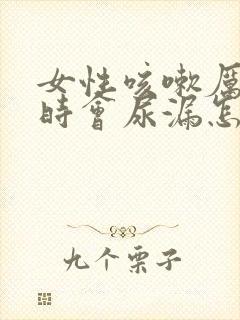 女性咳嗽厲
時會尿漏怎
九个栗子